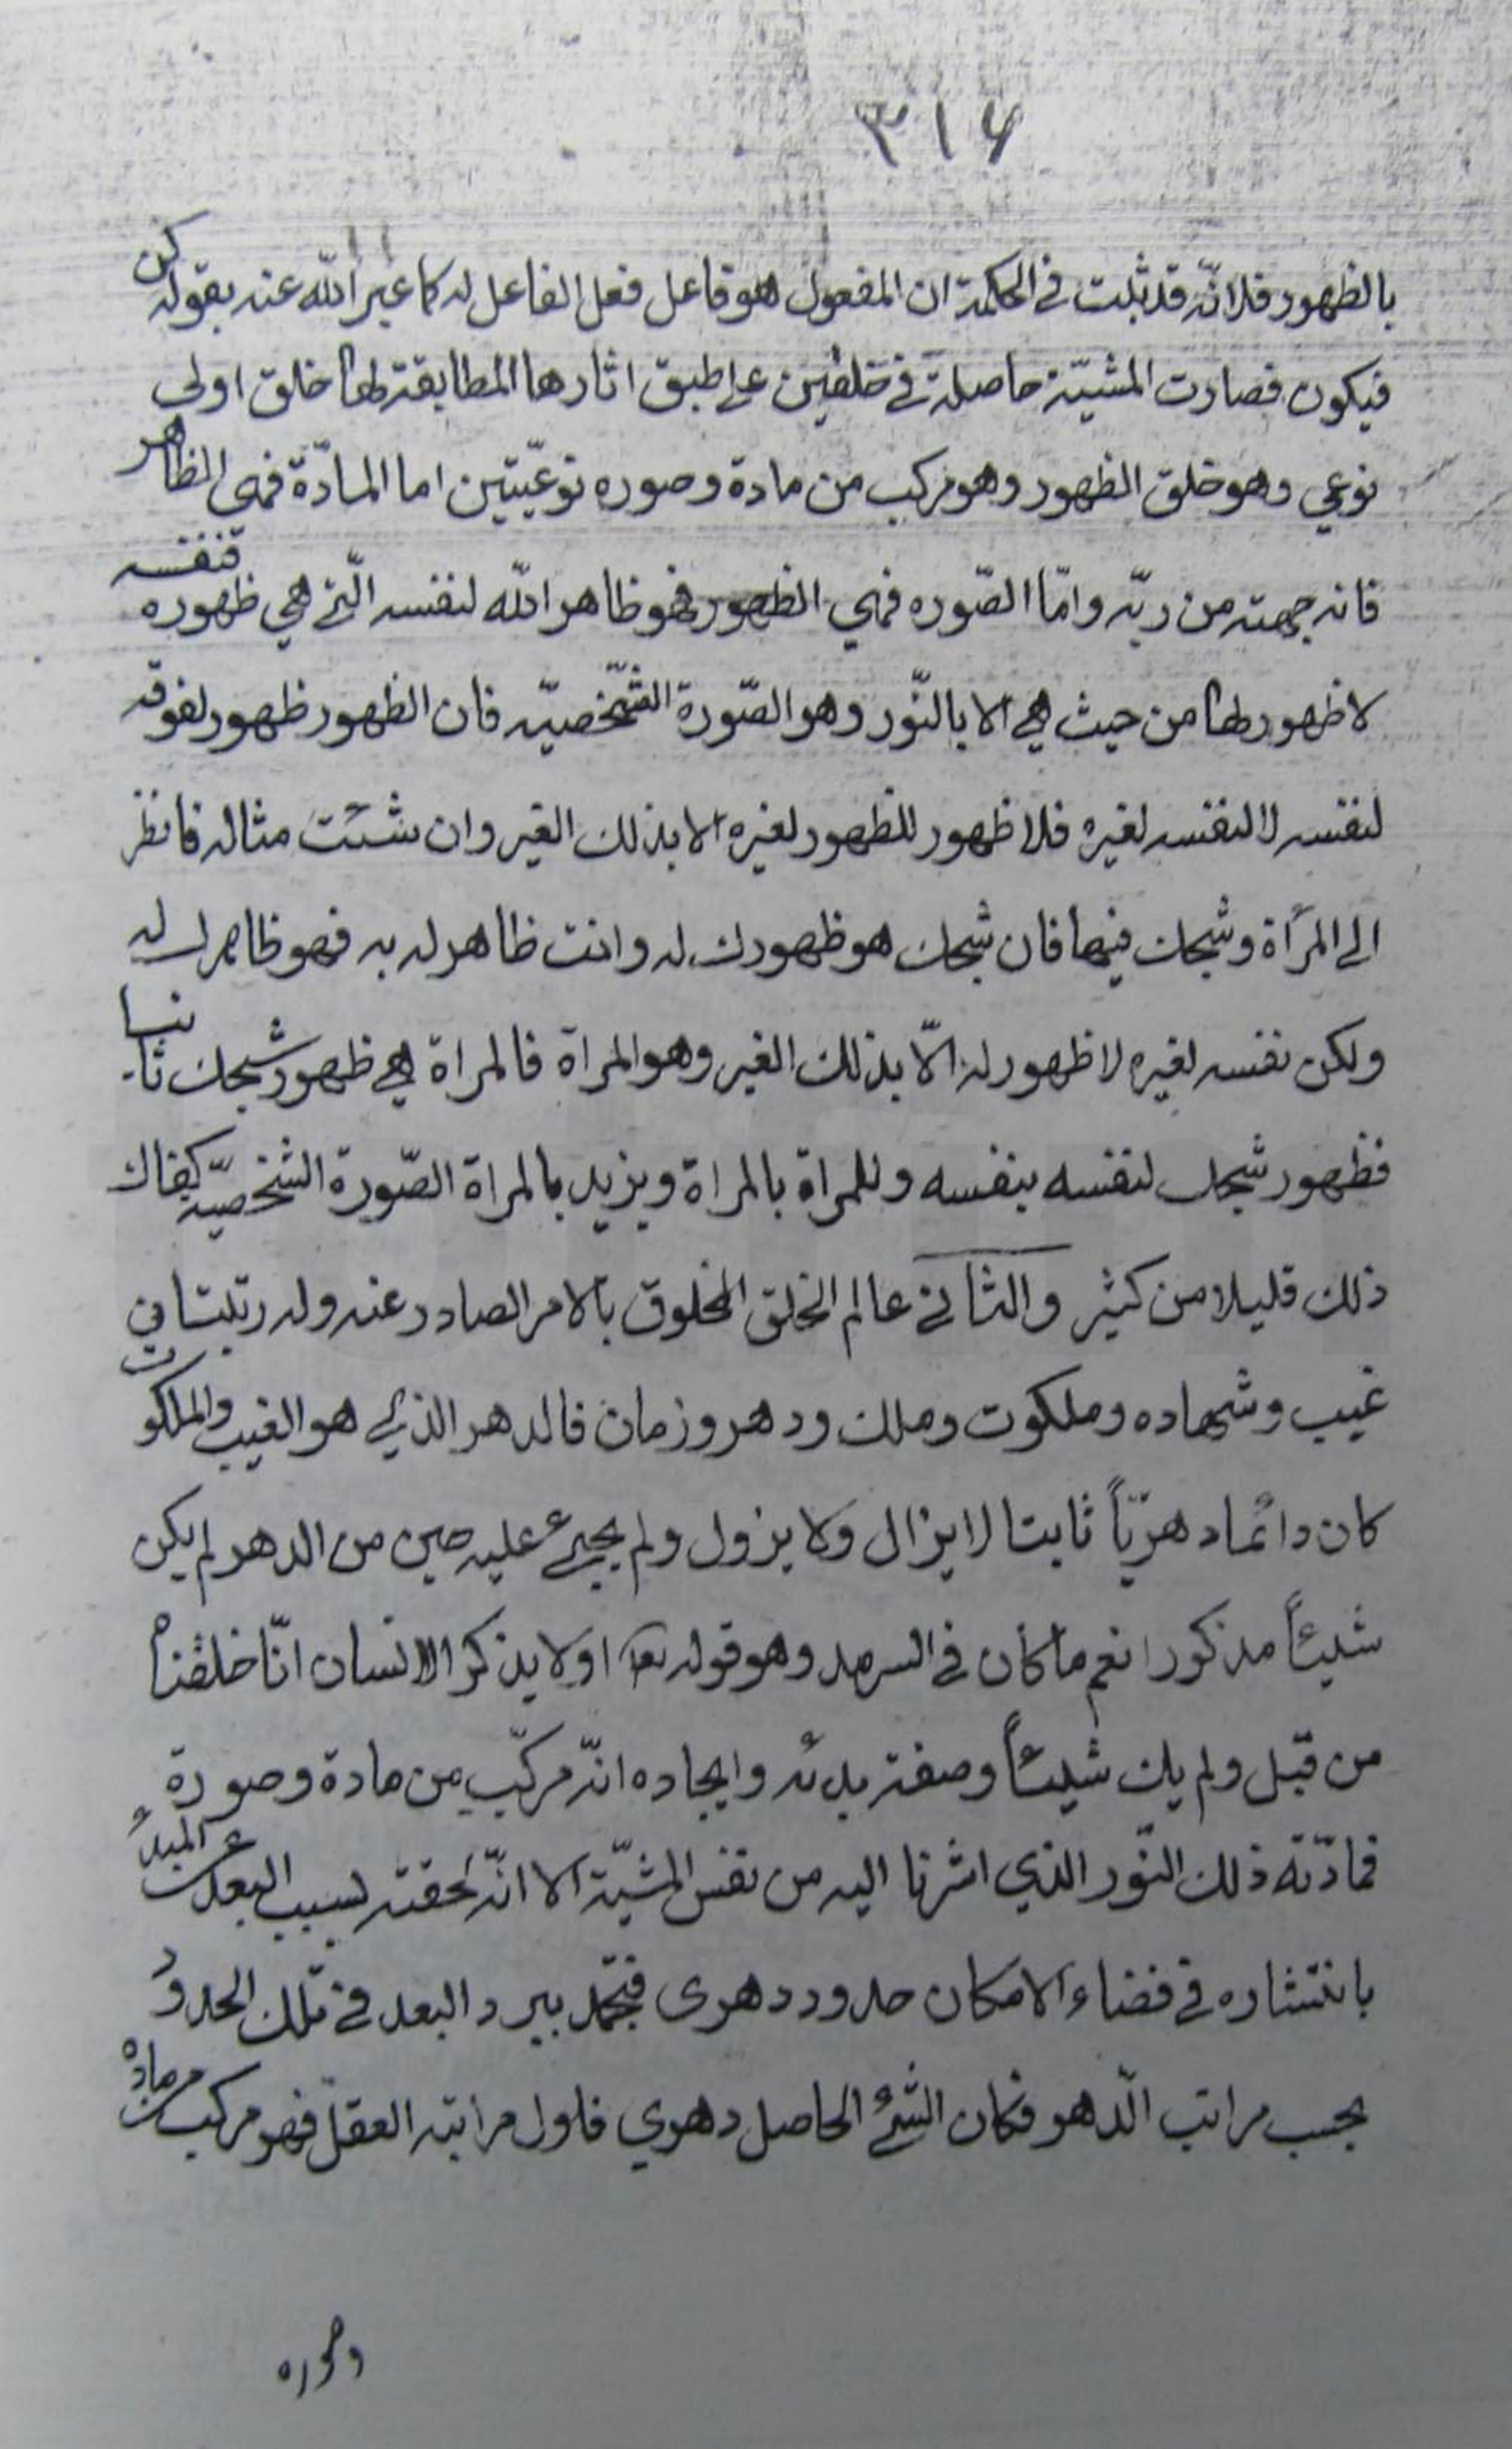 ٣١۶
بالظهور فلانّه قد ثبت في الحكمة ان المفعول هو فاعل فعل الفاعل له كما عبر الله عنه بقوله كن
فيكون فصارت المشيّة حاصلة في خلقين على طبق اثارها المطابقة لها خلق اولي
نوعي وهو خلق الظهور وهو مركب من مادة وصوره نوعيّتين اما المادّة فهى الظاهر
فانه جهته من ربّه وامّا الصّوره فهي الظهور فهو ظاهر الله لنفسه الّتي هي ظهوره فنفسه
لا ظهور لها من حيث هي الا بالنّور وهو الصّورة الشّخصيّه فان الظهور ظهور لفوقه
لنفسه لا لنفسه لغيره فلا ظهور للظهور لغيره الا بذلك الغير وان شئت مثاله فانظر
الى المرأة وشبحك فيها فان شبحك هو ظهورك له وانت ظاهر له به فهو ظاهرك له
ولكن نفسه لغيره لا ظهور له الّا بذلك الغير وهو المراة فالمراة هي ظهور شبحك ثانيا
فظهور شبحك لنفسه بنفسه وللمراة بالمراة ويزيد بالمراة الصّورة الشخصيّه كفاك
ذلك قليلا من كثير والثاني عالم الخلق المخلوق بالامر الصادر عنه وله رتبتان
غيب وشهاده وملكوت وملك ودهر وزمان فالدهر الذي هو الغيب والملكوت
كان دائما دهريّاً ثابتا لا يزال ولا يزول ولم يجئ عليه حين من الدهر لم يكن
شيئاً مذكورا نعم ما كان في السرمد وهو قوله تعا اولا يذكر الانسان انّا خلقناه
من قبل ولم يك شيئاً وصفة بدئه وايجاده انّه مركّب من مادة وصورة
فمادّته ذلك النّور الذي اشرنا اليه من نفس المشيّة الا انّه لحقته بسبب البعد عن المبدء
بانتشاره في فضاء الامكان حدود دهرى فتجمّد ببرد البعد في تلك الحدود
بحسب مراتب الّدهر فكان الشئ الحاصل دهري فاول مراتبه العقل فهو مركب من مادة
وصوره